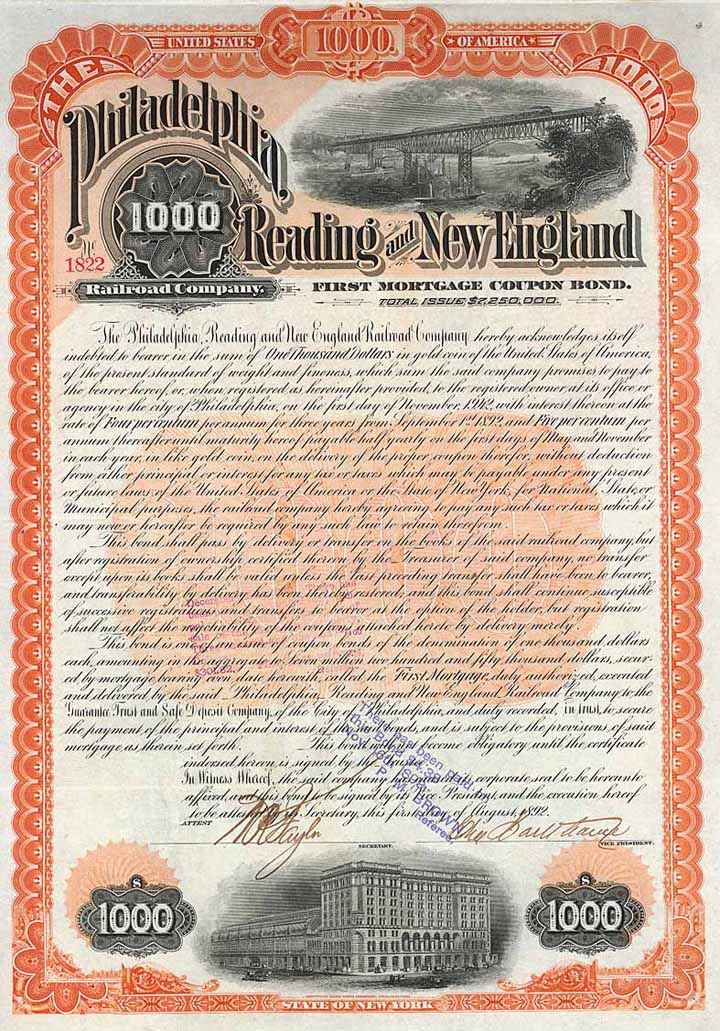 UNITED STATES 1000. OF AMERICA
THE 1000
Philadelphia,
1000
Reading and New England
No 1822
Railroad Company.
FIRST MORTGAGE COUPON BOND.
TOTAL ISSUE, $7,250,000.
The Philadelphia, Reading and New England Railroad Company hereby acknowledges itself
indebted to bearer in the sum of One Thousand Dollars in gold coin of the United States of America,
of the present standard of weight and fineness, which sum the said company promises to pay to
the bearer hereof, or, when registered as hereinafter provided, to the registered owner, at its office or
agency in the city of Philadelphia, on the first day of November, 1942, with interest thereon at the
rate of Four per centum per annum for three years from September 1st 1892, and Five per centum per
annum thereafter until maturity hereof payable half yearly on the first days of May and November
in each year, in like gold coin, on the delivery of the proper coupon therefor, without deduction
from either principal or interest for any tax or taxes which may be payable under any present
or future laws of the United States of America or the State of New York, for National, State, or
Municipal purposes, the railroad company hereby agreeing to pay any such tax or taxes which it
may now or hereafter be required by any such law to retain therefrom.
This bond shall pass by delivery or transfer in the books of the said railroad company, but
after registration of ownership certified thereon by the Treasurer of said company, no transfer
except upon its books shall be valid unless the last preceding transfer shall have been to bearer,
and transferability by delivery has been thereby restored; and this bond shall continue susceptible
of successive registrations and transfers to bearer at the option of the holder, but registration
shall not affect the negotiability of the coupons attached hereto by delivery merely.
This bond is one of an issue of coupon bonds of the denomination of one thousand dollars
each, amounting in the aggregate to seven million two hundred and fifty thousand dollars, secur-
ed by mortgage bearing even date herewith, called the First Mortgage, duly authorized, executed
and delivered by the said Philadelphia, Reading and New England Railroad Company to the
Guarantee Trust and Safe Deposit Company, of the City of Philadelphia, and duly recorded, in trust, to secure
the payment of the principal and interest of the said bonds, and is subject to the provisions of said
mortgage as therein set forth. This bond will not become obligatory until the certificate
indorsed hereon is signed by the Trustee.
In Witness Whereof, the said company has caused its corporate seal to be hereunto
affixed, and this bond to be signed by its Vice President, and the execution hereof
to be attested by its Secretary, this first day of August, 1892.
There has been paid
P. M. BROWN
Referee
ATTEST
SECRETARY.
VICE PRESIDENT.
$ 1000
$ 1000
STATE OF NEW YORK